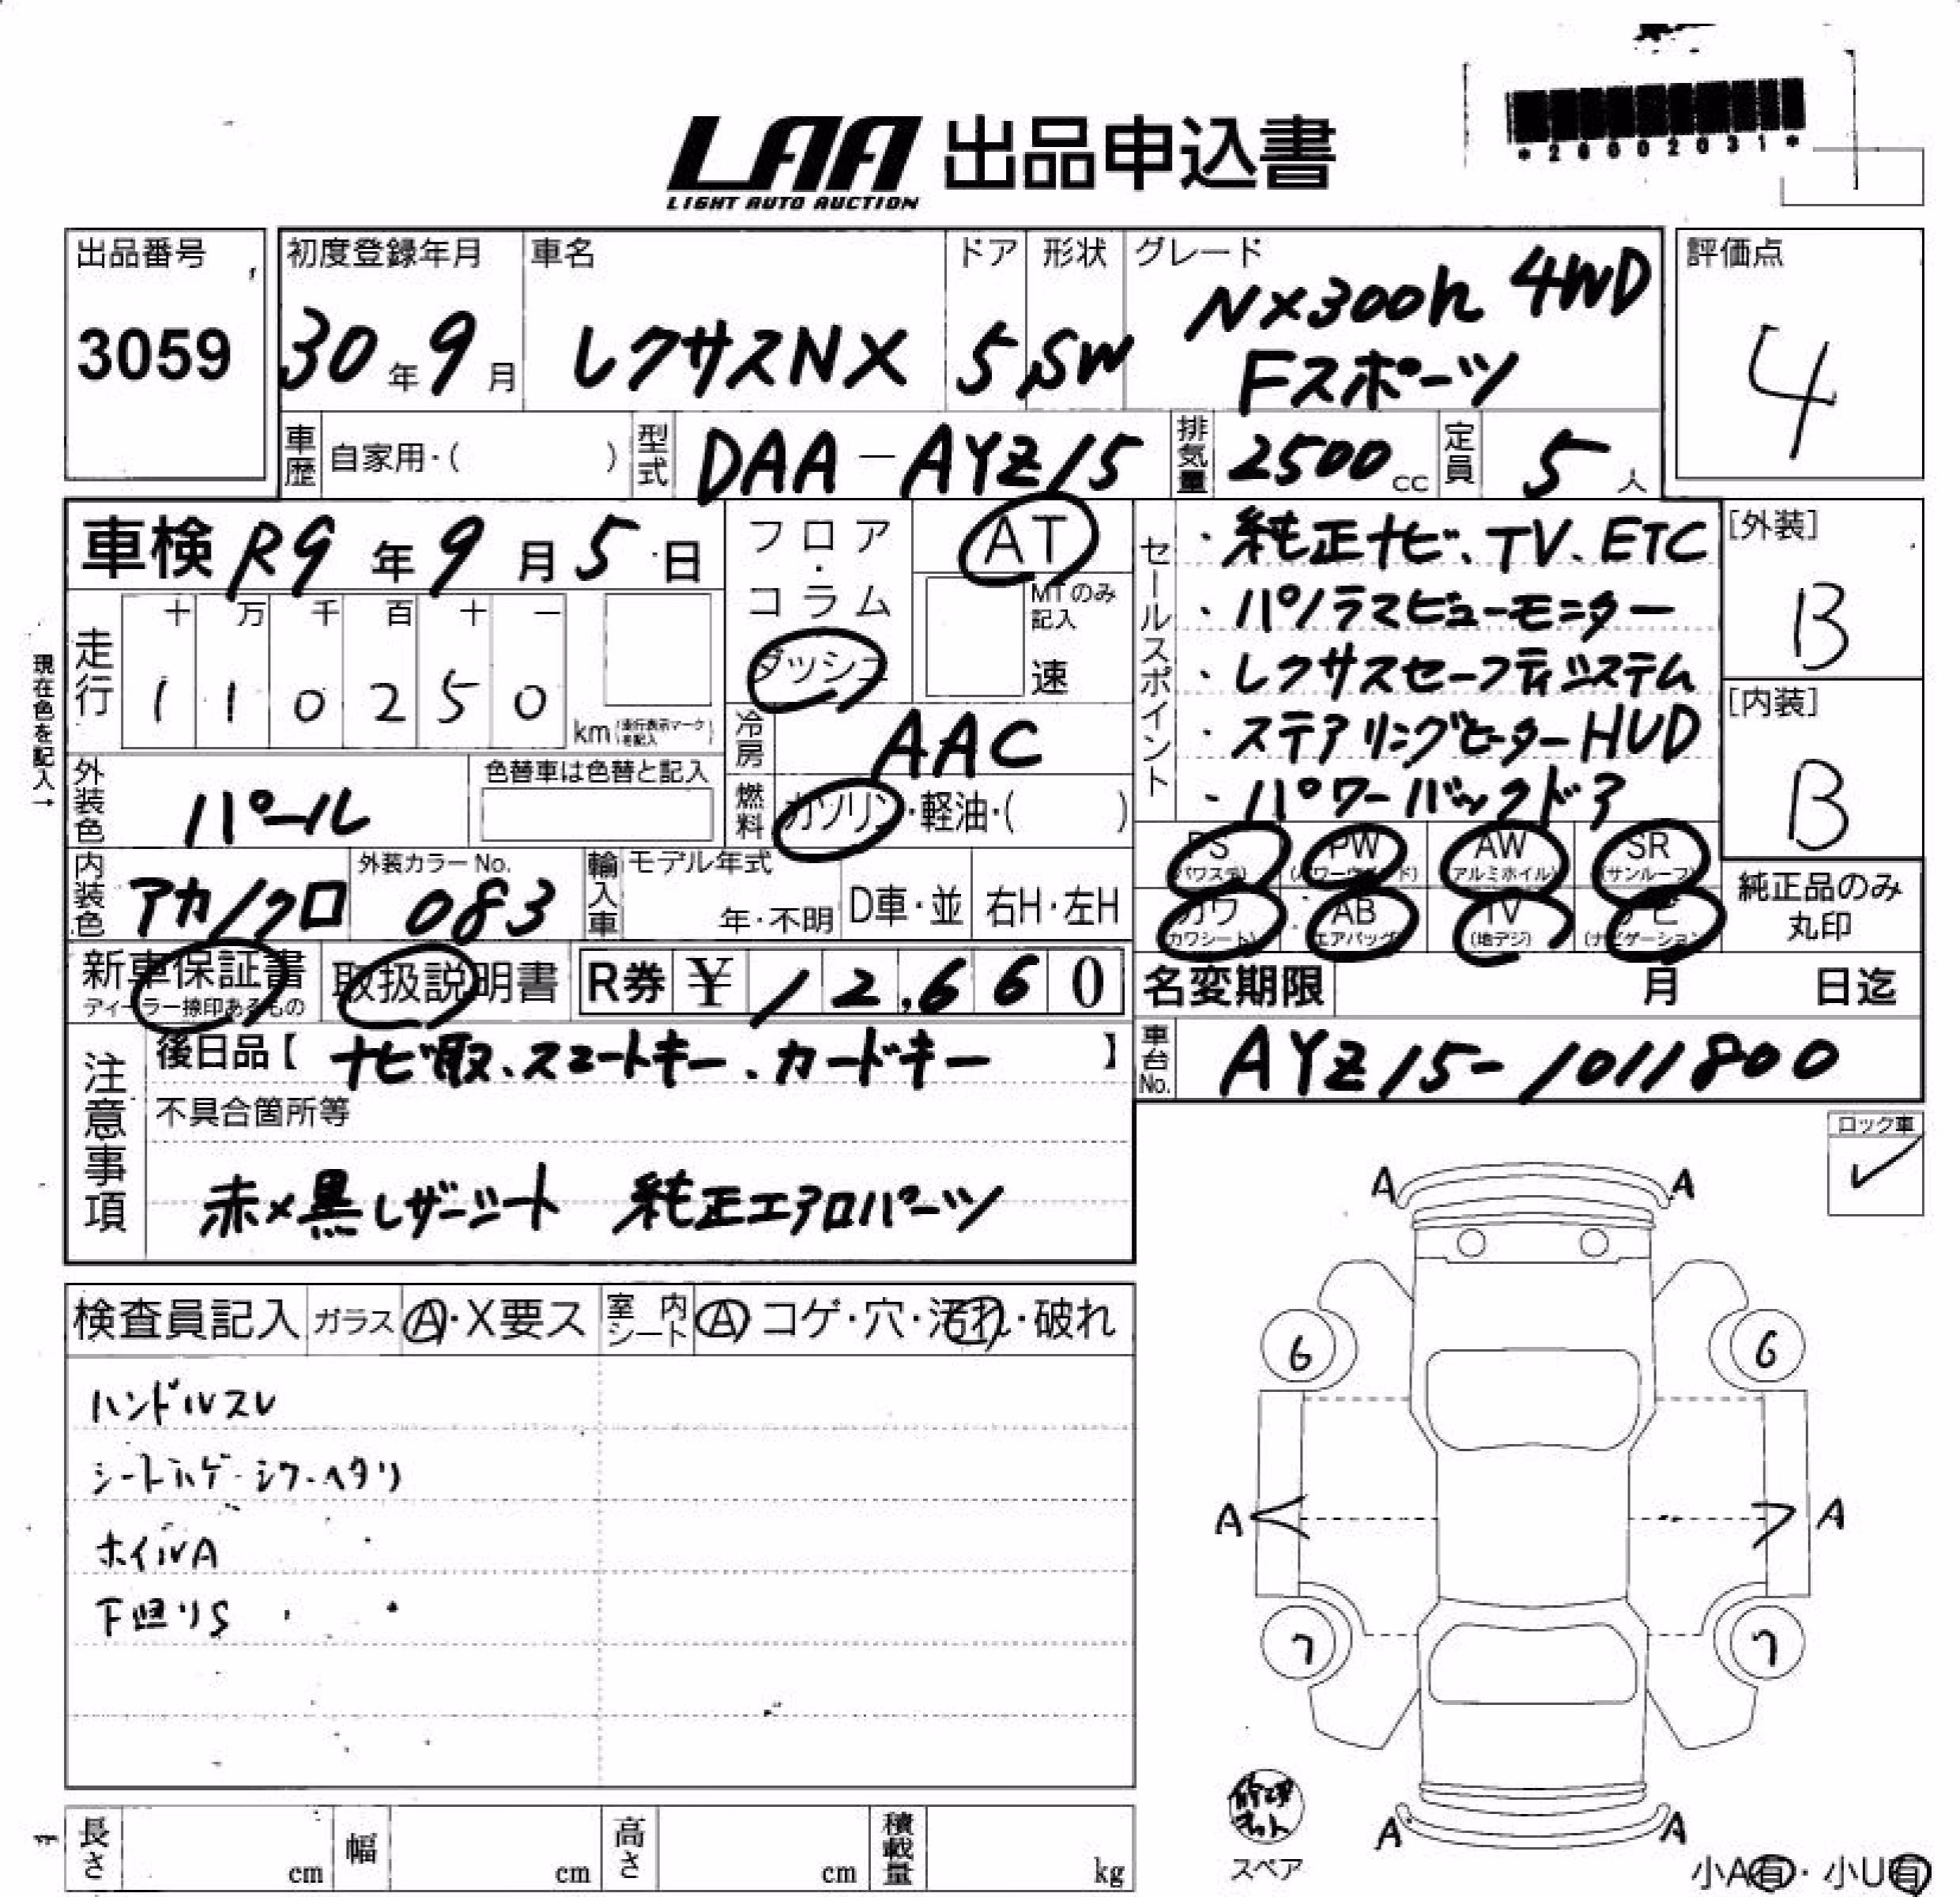 *26002031*
LAA 出品申込書
LIGHT AUTO AUCTION
出品番号
3059
初度登録年月
30年9月
車名
レクサスNX
ドア
5
形状
SW
グレード
NX300h 4WD
Fスポーツ
評価点
4
車歴
自家用・( )
型式
DAA-AYZ15
排気量
2500cc
定員
5人
車検 R9年9月5日
フロア・コラム
ダッシュ
AT
MTのみ記入
速
セールスポイント
・純正ナビ、TV、ETC
・パノラマビューモニター
・レクサスセーフティシステム
・ステアリングヒーターHUD
・パワーバックドア
[外装]
B
[内装]
B
現在色を記入→
走行
十 万 千 百 十 一
1 1 0 2 5 0
km (走行表示マークを記入)
冷房
AAC
外装色
パール
色替車は色替と記入
燃料
ガソリン・軽油・( )
PS (パワステ)
PW (パワーウインド)
AW (アルミホイル)
SR (サンルーフ)
カワ (カワシート)
AB (エアバッグ)
TV (地デジ)
ナビ (ナビゲーション)
純正品のみ丸印
内装色
アカ/クロ
外装カラーNo.
083
輸入車
モデル年式
年・不明
D車・並
右H・左H
新車保証書
ディーラー捺印あるもの
取扱説明書
R券 ¥ 12,660
名変期限 月 日迄
車台No.
AYZ15-1011800
注意事項
後日品【 ナビ取、スマートキー、カードキー 】
不具合箇所等
赤×黒レザーシート 純正エアロパーツ
ロック車
✓
検査員記入
ガラス
A・X要ス
室内シート
A コゲ・穴・汚れ・破れ
ハンドルスレ
シートハゲ・シワ・ヘタリ
ホイルA
下廻りS
A A
6 6
A A
7 7
A A
修理キット
スペア
小A有・小U有
長さ cm
幅 cm
高さ cm
積載量 kg